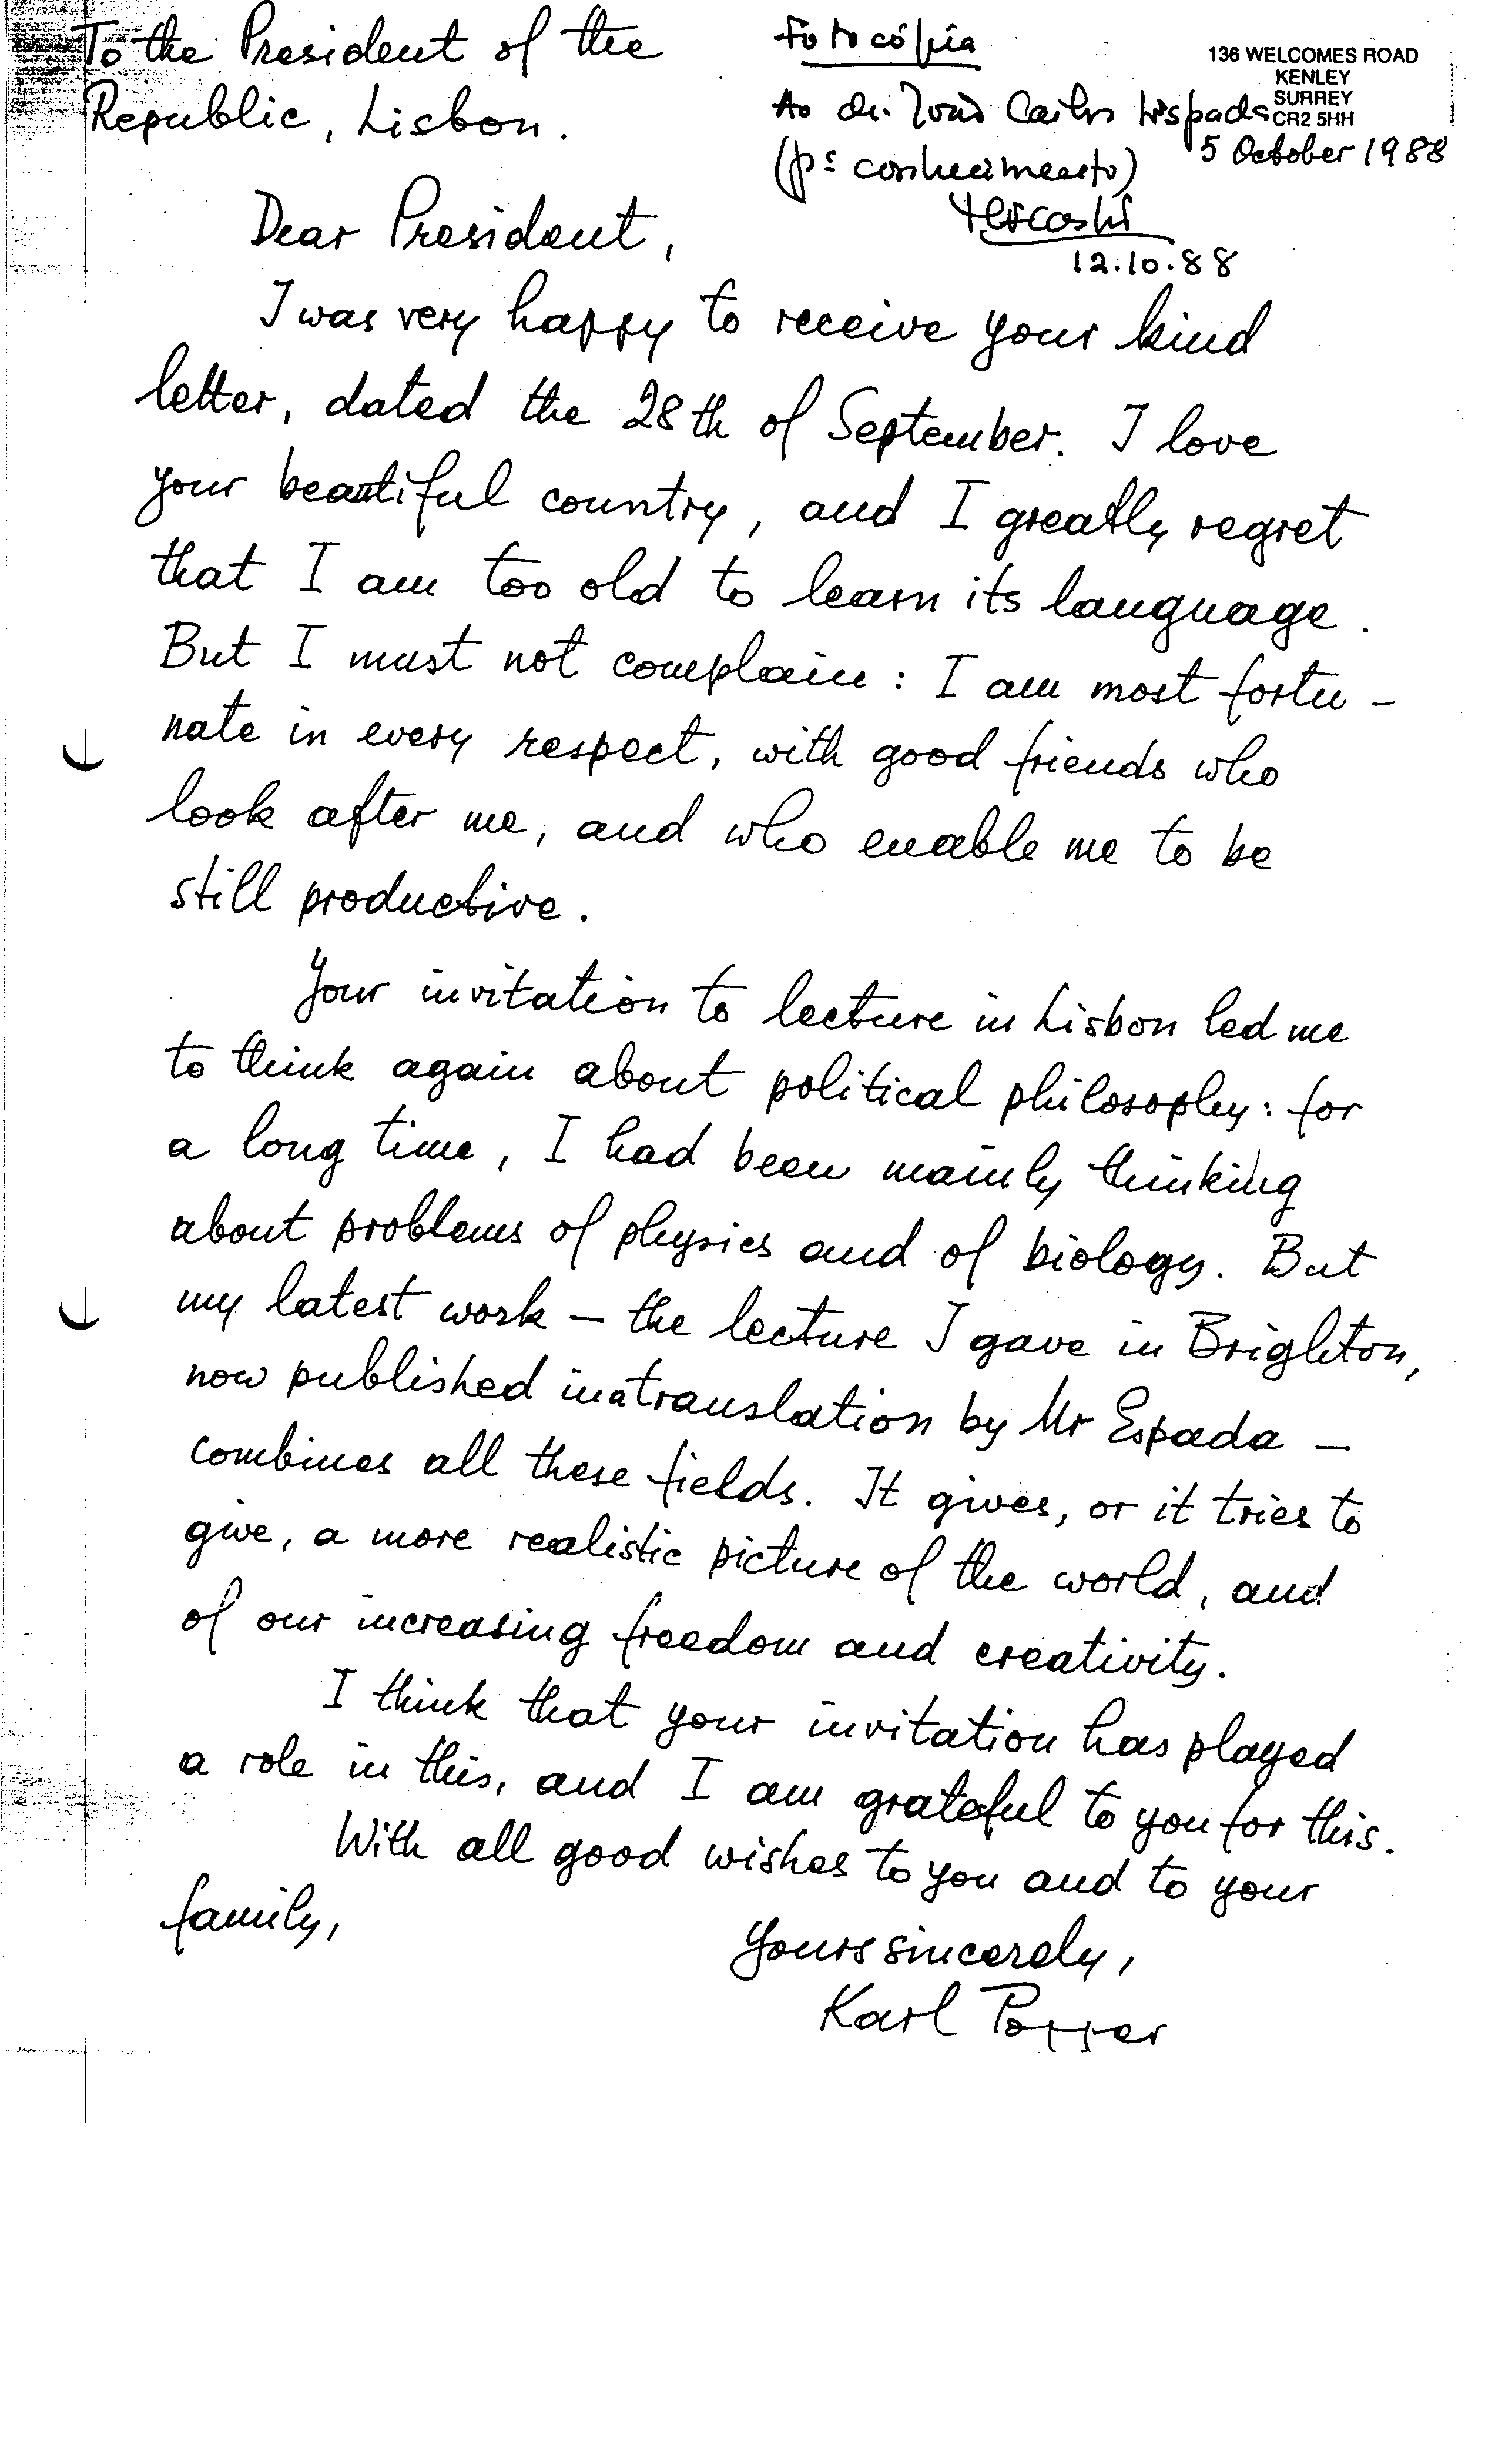 To the President of the
Republic, Lisbon.
Fotocópia
Ao dr. João Carlos Espada
(pª conhecimento)
12.10.88
136 WELCOMES ROAD
KENLEY
SURREY
CR2 5HH
5 October 1988
Dear President,
I was very happy to receive your kind
letter, dated the 28th of September. I love
your beautiful country, and I greatly regret
that I am too old to learn its language.
But I must not complain: I am most fortu-
nate in every respect, with good friends who
look after me, and who enable me to be
still productive.
Your invitation to lecture in Lisbon led me
to think again about political philosophy: for
a long time, I had been mainly thinking
about problems of physics and of biology. But
my latest work – the lecture I gave in Brighton,
now published in a translation by Mr Espada –
combines all these fields. It gives, or it tries to
give, a more realistic picture of the world, and
of our increasing freedom and creativity.
I think that your invitation has played
a role in this, and I am grateful to you for this.
With all good wishes to you and to your
family,
Yours sincerely,
Karl Popper